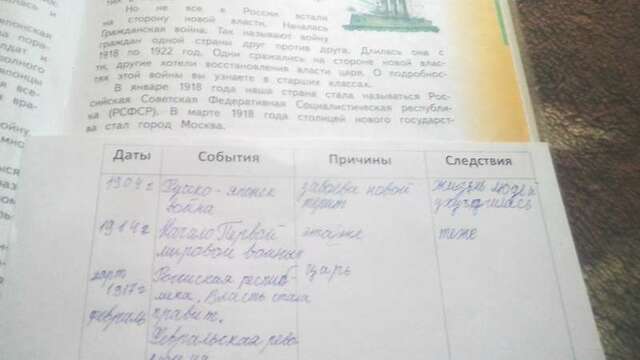 Но не все в России встали
на сторону новой власти. Началась
Гражданская война. Так называют войну
граждан одной страны друг против друга. Длилась она с
1918 по 1922 год. Одни сражались на стороне новой влас-
ти, другие хотели восстановления власти царя. О подробнос-
тях этой войны вы узнаете в старших классах.
В январе 1918 года наша страна стала называться Рос-
сийская Советская Федеративная Социалистическая республи-
ка (РСФСР). В марте 1918 года столицей нового государст-
ва стал город Москва.
Даты События Причины Следствия
1904 г Русско-японск завоева новой жизнь людей
война ухудшилась
1914 г Начало Первой та же те же
мировой войны
март Российская респуб- царь
1917 г лика. Власть стала
февраль править.
Февральская рево